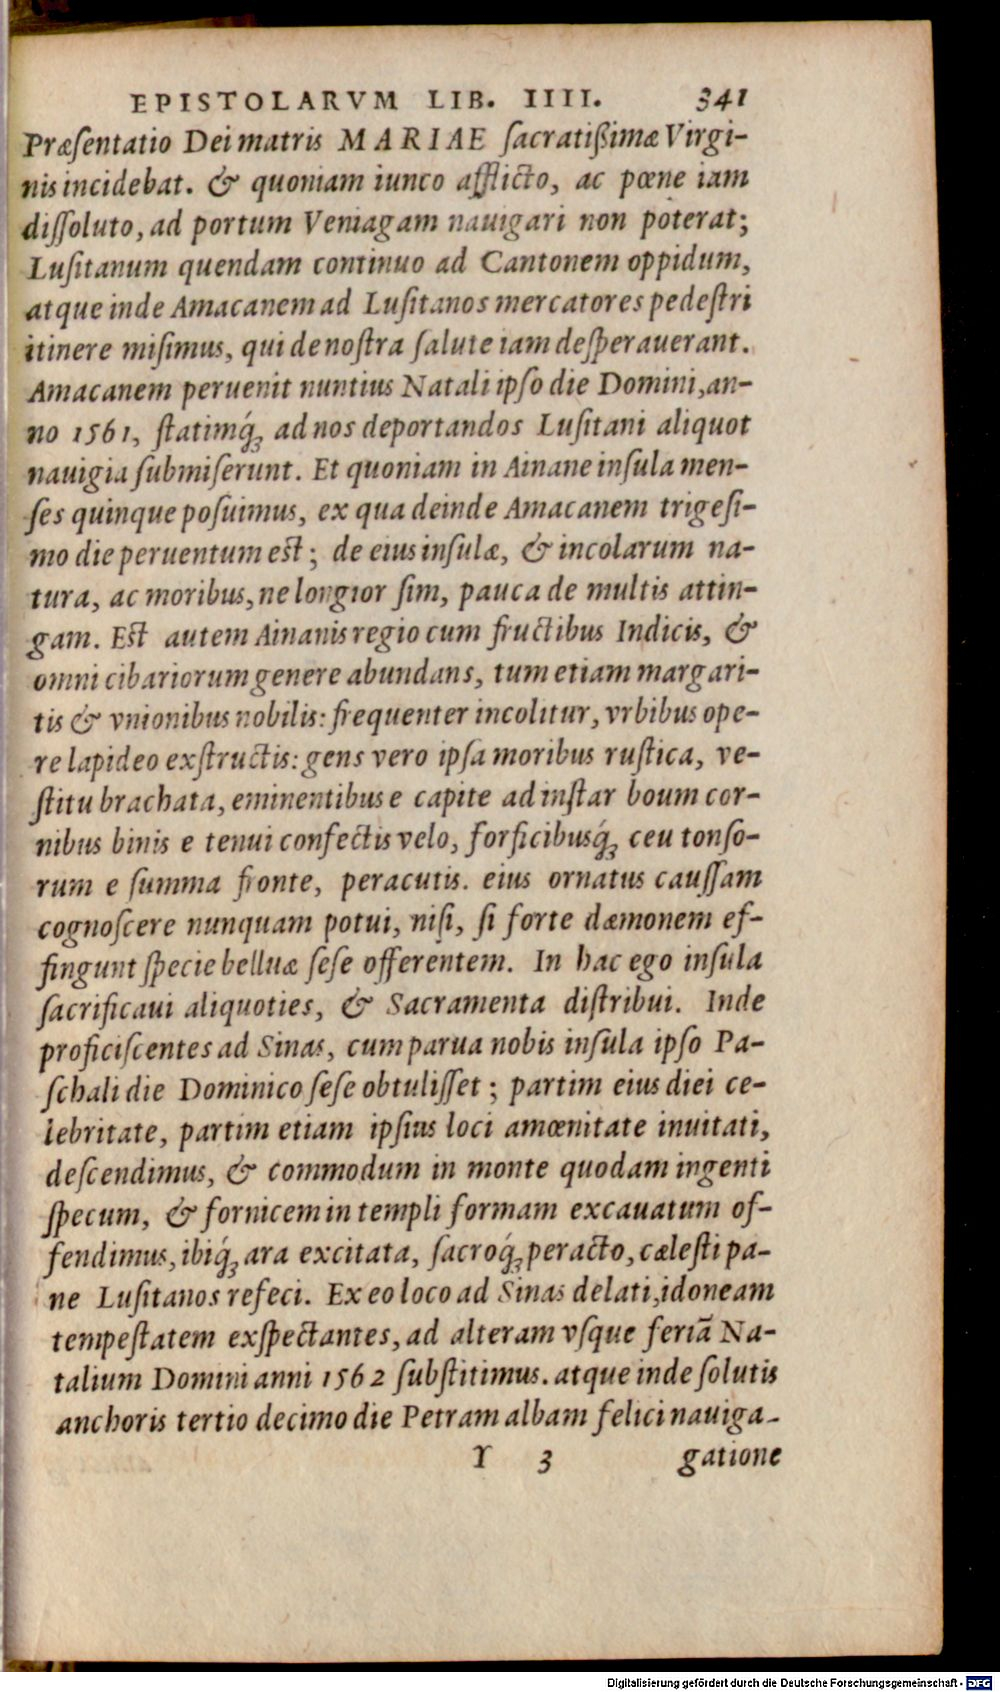 EPISTOLARVM LIB. IIII. 341
Præſentatio Dei matris MARIAE ſacratißimæ Virgi-
nis incidebat. & quoniam iunco afflicto, ac pœne iam
diſſoluto, ad portum Veniagam nauigari non poterat;
Luſitanum quendam continuo ad Cantonem oppidum,
atque inde Amacanem ad Luſitanos mercatores pedeſtri
itinere miſimus, qui de noſtra ſalute iam deſperauerant.
Amacanem peruenit nuntius Natali ipſo die Domini, an-
no 1561, ſtatimq́ꝫ ad nos deportandos Luſitani aliquot
nauigia ſubmiſerunt. Et quoniam in Ainane inſula men-
ſes quinque poſuimus, ex qua deinde Amacanem trigeſi-
mo die peruentum est; de eius inſulæ, & incolarum na-
tura, ac moribus, ne longior ſim, pauca de multis attin-
gam. Est autem Ainanis regio cum fructibus Indicis, &
omni cibariorum genere abundans, tum etiam margari-
tis & vnionibus nobilis: frequenter incolitur, vrbibus ope-
re lapideo exſtructis: gens vero ipſa moribus ruſtica, ve-
ſtitu brachata, eminentibus e capite ad inſtar boum cor-
nibus binis e tenui confectis velo, forficibusq́ꝫ ceu tonſo-
rum e ſumma fronte, peracutis. eius ornatus cauſſam
cognoſcere nunquam potui, niſi, ſi forte dæmonem ef-
fingunt ſpecie belluæ ſeſe offerentem. In hac ego inſula
ſacrificaui aliquoties, & Sacramenta diſtribui. Inde
proficiſcentes ad Sinas, cum parua nobis inſula ipſo Pa-
ſchali die Dominico ſeſe obtuliſſet; partim eius diei ce-
lebritate, partim etiam ipſius loci amœnitate inuitati,
deſcendimus, & commodum in monte quodam ingenti
ſpecum, & fornicem in templi formam excauatum of-
fendimus, ibiq́ꝫ ara excitata, ſacroq́ꝫ peracto, cæleſti pa-
ne Luſitanos refeci. Ex eo loco ad Sinas delati, idoneam
tempeſtatem exſpectantes, ad alteram vſque feriā Na-
talium Domini anni 1562 ſubſtitimus. atque inde ſolutis
anchoris tertio decimo die Petram albam felici nauiga-
Y 3 gatione
Digitalisierung gefördert durch die Deutsche Forschungsgemeinschaft - DFG